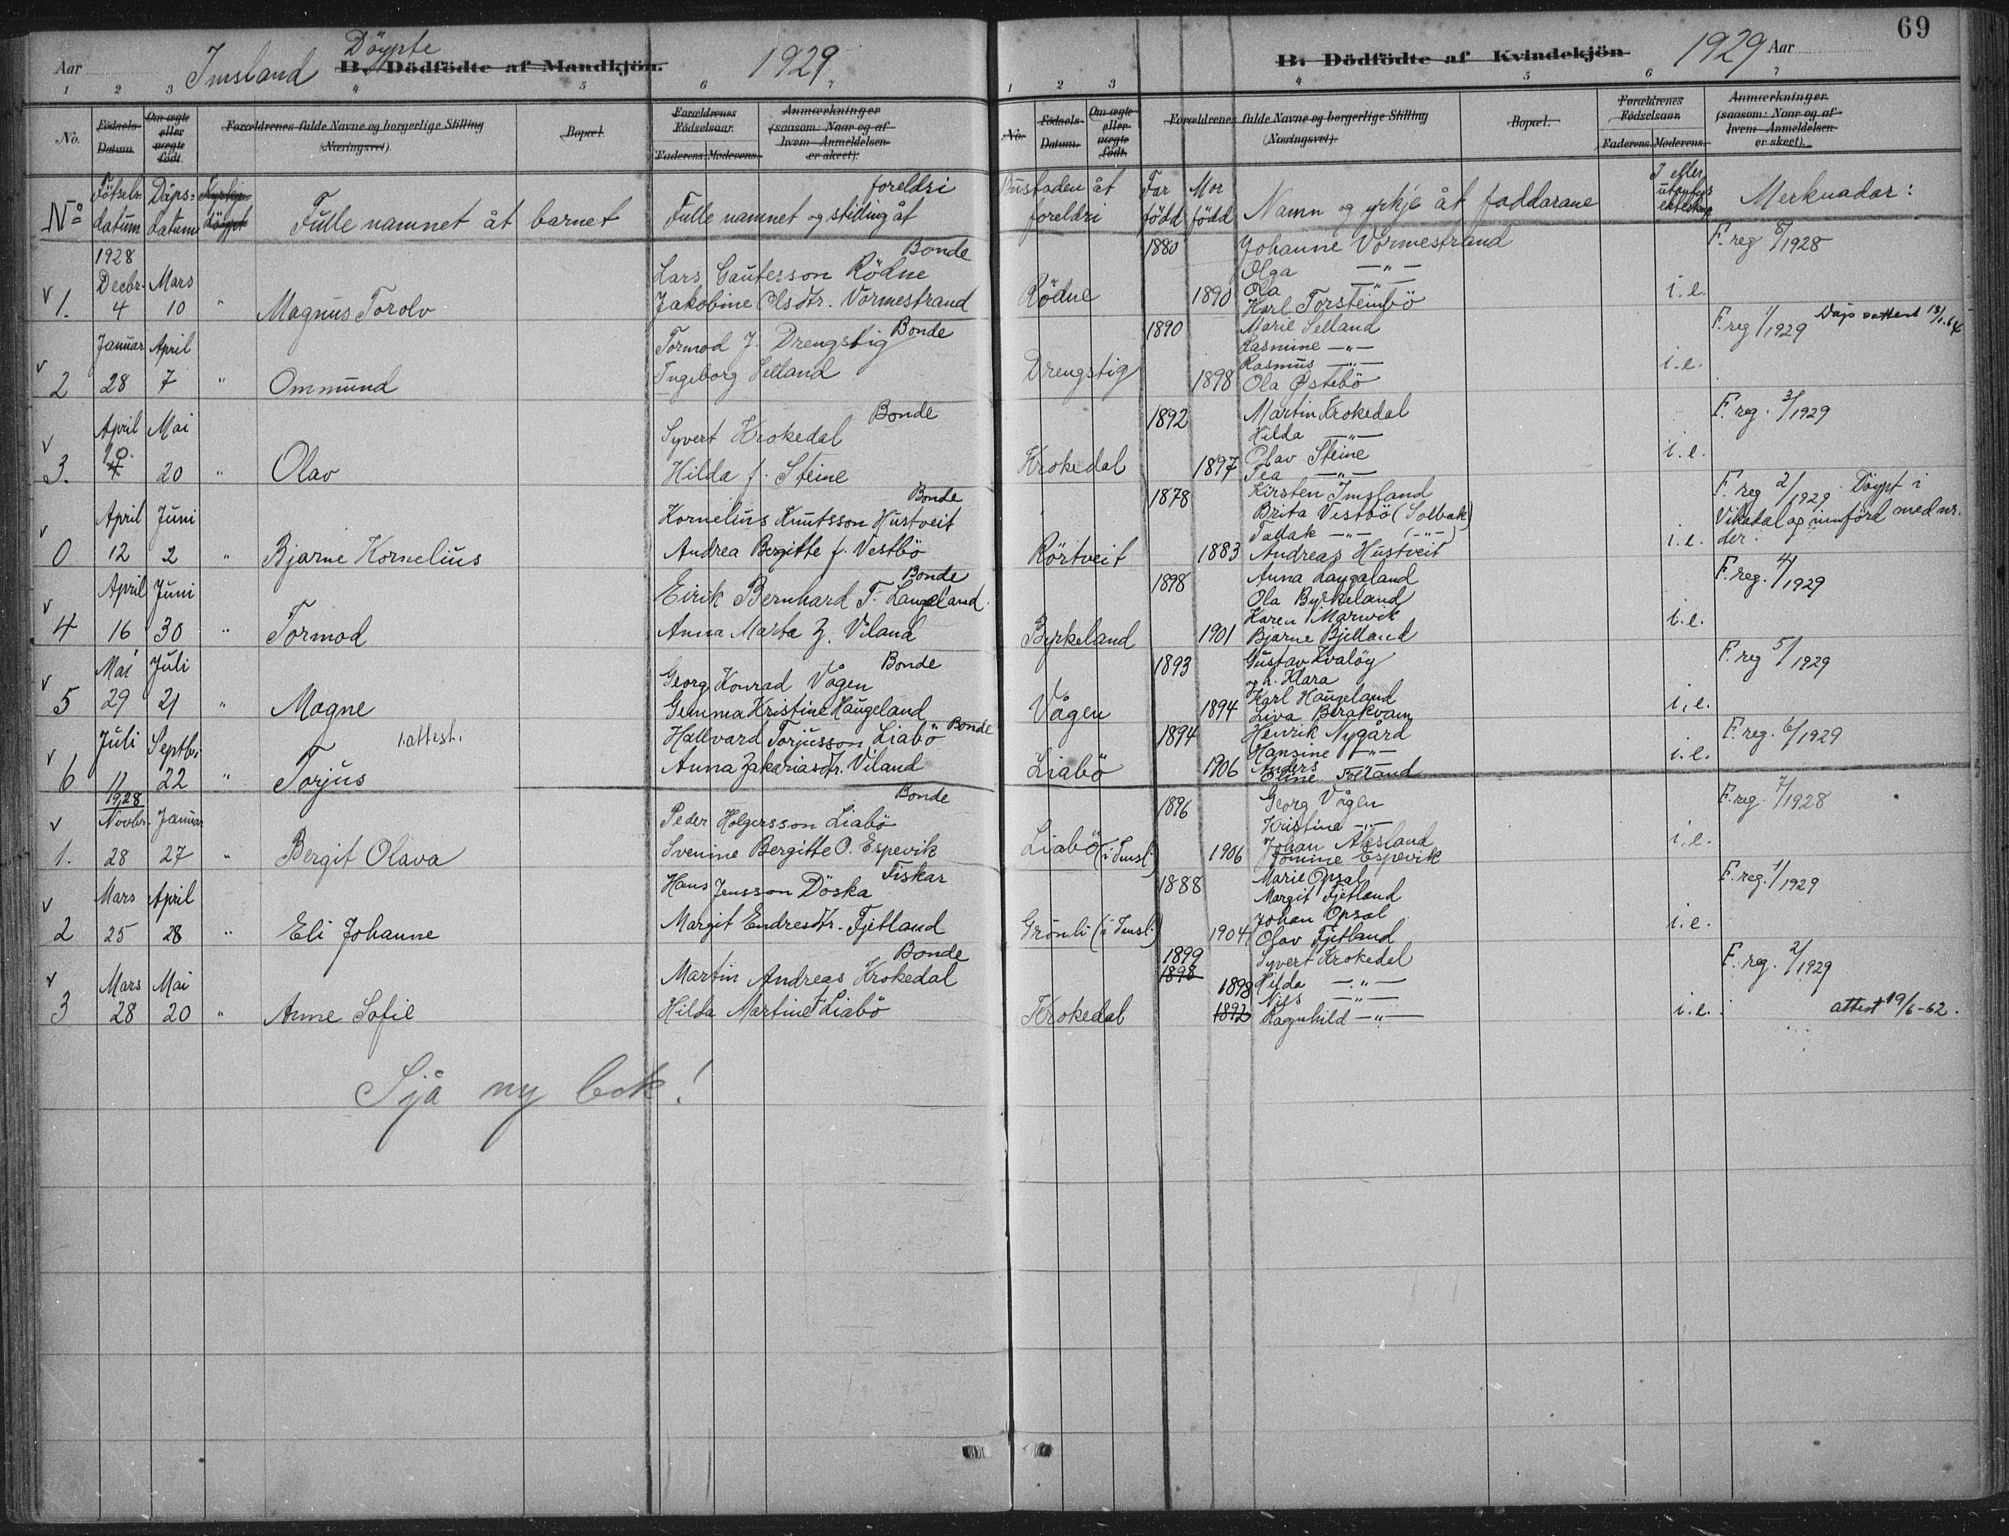 69
Aar Imsland Döypte B. Dödfödte af Mandkjön. 1929
B. Dödfödte af Kvindekjön 1929 Aar
1 2 3 4 5 6 7
1 2 3 4 5 6 7
No. Födsels-Datum. Om ægte eller uægte födt. Forældrenes fulde Navne og borgerlige Stilling (Næringsvei). Bopæl. Forældrenes Födselsaar. Faderens. Moderens. Anmærkninger (saasom: Naar og af hvem Anmeldelsen er skeet).
No. Födsels-Datum. Om ægte eller uægte födt. Forældrenes fulde Navne og borgerlige Stilling (Næringsvei). Bopæl. Forældrenes Födselsaar. Faderens. Moderens. Anmærkninger (saasom: Naar og af hvem Anmeldelsen er skeet).
No Fötsels-datum Dåps-datum döypt Fulle namnet åt barnet Fulle namnet og stilling åt foreldri
Bustaden åt foreldri Far född Mor född Namn og yrkje åt faddarane I eller utanfor ektesk. Merknadar:
1928
Decbr. Mars
v 1. 4 10 " Magnus Torolv
Bonde
Lars Gautesson Rödne
Jakobine Olsdtr. Vormestrand
Rödne 1880 1890
Johanne Vormestrand
Olga —"—
Ola —"—
Karl Torsteinbö
i.e. F. reg 8/1928
Januar April
v 2 28 7 " Ommund
Tormod J. Drengstig Bonde
Ingeborg Selland
Drengstig 1890 1898
Marie Selland
Rasmine —"—
Rasmus —"—
Ola Östebö
i.e. F. reg 1/1929 Dåpsattest
April Mai
v 3. 20 " Olav
Bonde
Syvert Krokedal
Hilda f. Steine
Krokedal 1892 1897
Martin Krokedal
Hilda —"—
Olav Steine
Tea —"—
i.e. F. reg. 3/1929
April Juni
v 0 12 2 " Bjarne Kornelius
Bonde
Kornelius Knutsson Hustveit
Andrea Bergitte f. Vestbö
Rörtveit 1878 1883
Kirsten Imsland
Brita Vestbö (Solbak)
Tadak —"— (—"—)
Andreas Hustveit
i.e. F. reg 2/1929. Döypt i
Vikedal og innförd med nr.
der.
April Juni
v 4 16 30 " Tormod
Bonde
Eirik Bernhard T. Langeland.
Anna Marta Z. Viland
Byrkeland 1898 1901
Anna Langeland
Ola Byrkeland
Karen Marwik
Bjarne Bjelland
i.e. F. reg. 4/1929
Mai Juli
v 5 29 21 " Magne
Bonde
Georg Konrad Vågen
Gemma Kristine Haugeland
Vågen 1893 1894
Gustav Kvalöy
og h. Klara
Karl Haugeland
Liva Berakvam
i.e. F. reg 5/1929
Juli Septbr.
v 6 11 22 " Torjus 1.attest.
Hallvard Torjusson Liabö Bonde
Anna Zakariasdtr. Viland
Liabö 1894 1906
Henrik Nygård
Hansine —"—
Anders
i.e. F. reg. 6/1929
1928
Novbr. Januar
v 1. 28 27 " Bergit Olava
Bonde
Peder Holgersson Liabö
Svenine Bergitte O. Espevik
Liabö (i Imsl.) 1896 1906
Georg Vågen
Kristine —"—
Johan Aksland
Jomine Espevik
i.e. F. reg. 7/1928
Mars April
v 2 25 28 " Eli Johanne
Fiskar
Hans Jensson Döska
Margit Endresdtr. Fjetland
Grönli (i Imsl.) 1888 1904
Marie Opsal
Margit Fjetland
Johan Opsal
Olav Fjetland
i.e. F. reg. 1/1929
Mars Mai
v 3 28 20 " Anne Sofie
Bonde
Martin Andreas Krokedal
Hilda Martine F. Liabö
Krokedal 1899 1898 1898 1892
Syvert Krokedal
Hilda —"—
Nils —"—
Ragnhild —"—
i.e. F. reg. 2/1929
attest 19/6-62.
Sjå ny bok!